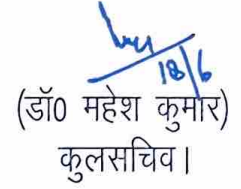 18/6
(डॉ0 महेश कुमार)
कुलसचिव।